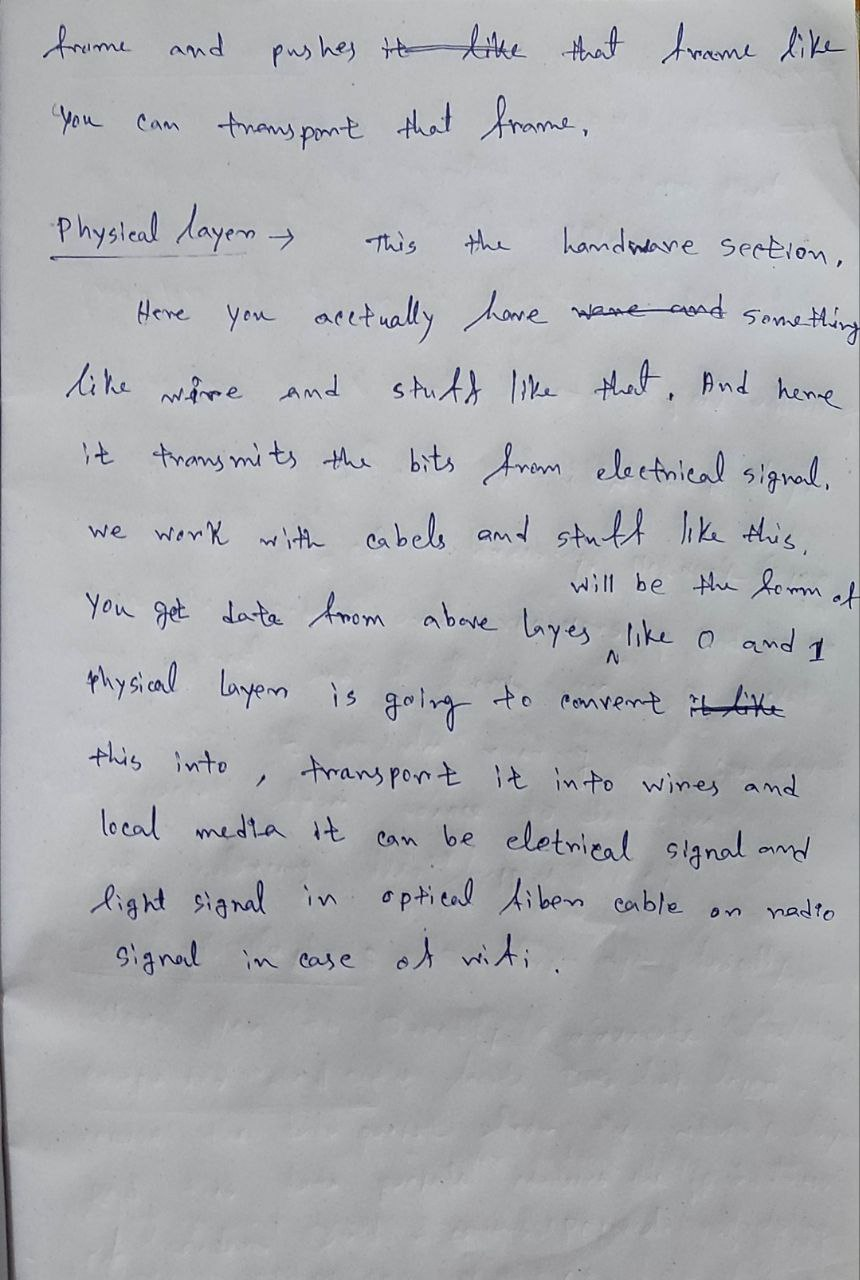 frame and pushes it like that frame like
you can transport that frame.
Physical layer → This the hardware section.
Here you acctually have were and something
like wire and stuff like that. And here
it transmits the bits from electrical signal.
we work with cabels and stuff like this.
will be the form of
You get data from above layes like 0 and 1
physical layer is going to convert it like
this into , transport it into wires and
local media it can be eletrical signal and
light signal in optical fiber cable or radio
signal in case of wifi .